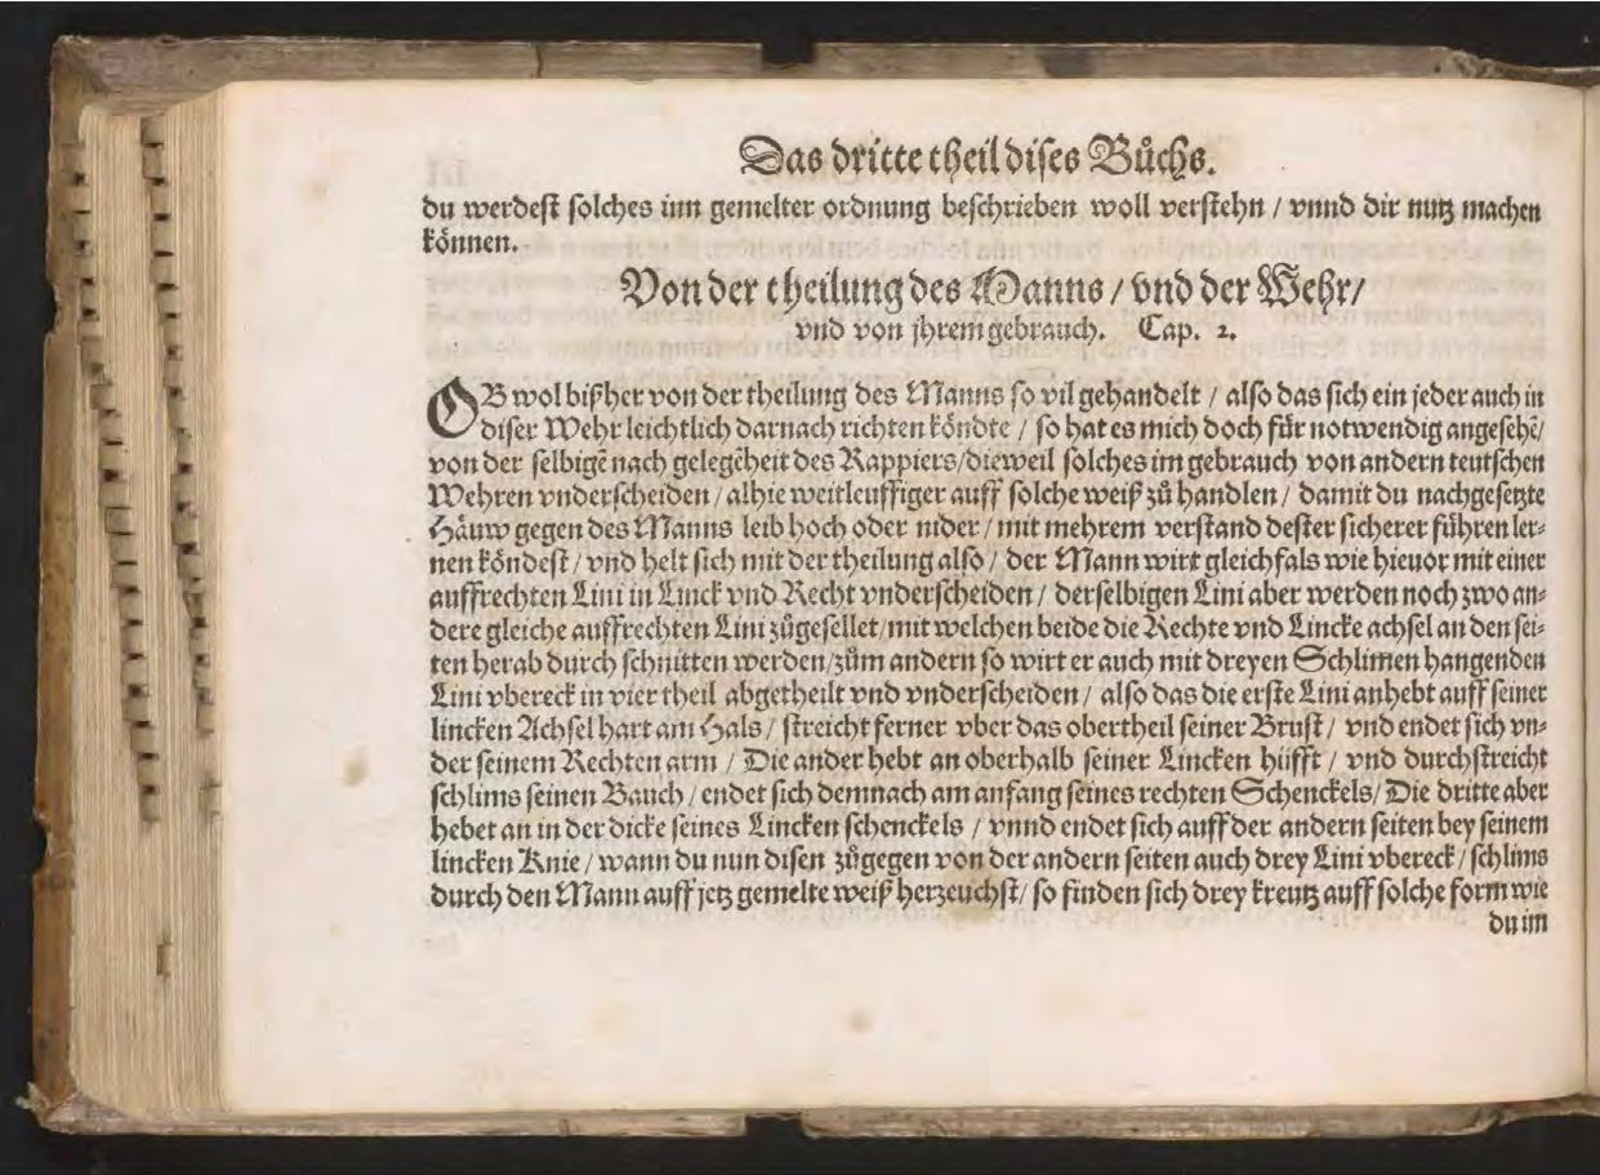 Das dritte theil dises Bůchs.
du werdest solches inn gemelter ordnung beschrieben woll verstehn / vnnd dir nutz machen
können.
Von der theilung des Manns / vnd der Wehr /
vnd von jhrem gebrauch. Cap. 2.
OB wol bißher von der theilung des Manns so vil gehandelt / also das sich ein jeder auch in
diser Wehr leichtlich darnach richten köndte / so hat es mich doch für notwendig angesehē /
von der selbigē nach gelegēheit des Rappiers / dieweil solches im gebrauch von andern teutschen
Wehren vnderscheiden / alhie weitleuffiger auff solche weiß zů handlen / damit du nachgesetzte
Häuw gegen des Manns leib hoch oder nider / mit mehrem verstand dester sicherer führen ler-
nen köndest / vnd helt sich mit der theilung also / der Mann wirt gleichfals wie hieuor mit einer
auffrechten Lini in Linck vnd Recht vnderscheiden / derselbigen Lini aber werden noch zwo an-
dere gleiche auffrechten Lini zůgesellet / mit welchen beide die Rechte vnd Lincke achsel an den sei-
ten herab durch schnitten werden / zům andern so wirt er auch mit dreyen Schlimen hangenden
Lini vbereck in vier theil abgetheilt vnd vnderscheiden / also das die erste Lini anhebt auff seiner
lincken Achsel hart am Hals / streicht ferner vber das obertheil seiner Brust / vnd endet sich vn-
der seinem Rechten arm / Die ander hebt an oberhalb seiner Lincken hüfft / vnd durchstreicht
schlims seinen Bauch / endet sich demnach am anfang seines rechten Schenckels / Die dritte aber
hebet an in der dicke seines Lincken schenckels / vnnd endet sich auff der andern seiten bey seinem
lincken Knie / wann du nun disen zůgegen von der andern seiten auch drey Lini vbereck / schlims
durch den Mann auff jetz gemelte weiß herzeuchst / so finden sich drey kreutz auff solche form wie
du im